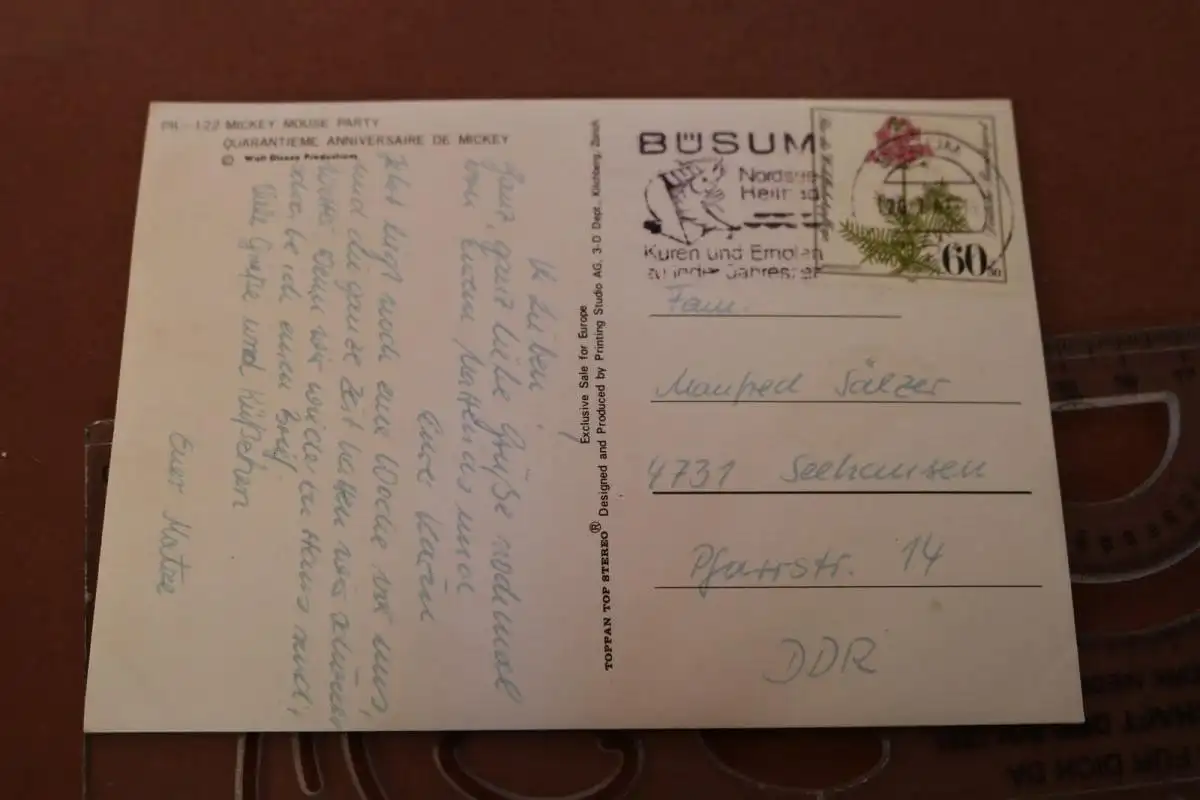 PR-122 MICKEY MOUSE PARTY
QUARANTIEME ANNIVERSAIRE DE MICKEY
© Walt Disney Productions
Ganz, ganz liebe Grüße nochmal
von Eurem Matthias und
Eure Karin
Jetzt liegt noch eine Woche vor uns,
und die ganze Zeit hatten wir schönes
Wetter. Wenn wir wieder zu Haus sind,
schreibe ich einen Brief.
Viele Grüße und Küßchen
Euer Matze
Exclusive Sale for Europe
TOPPAN TOP STEREO® Designed and Produced by Printing Studio AG, 3-D Dept., Kilchberg, Zürich
BÜSUM
Nordsee
Heilbad
Kuren und Erholen
zu jeder Jahreszeit
60
Fam.
Manfred Sälzer
4731 Seehausen
Pfarrstr. 14
DDR
FÜR DICH DA